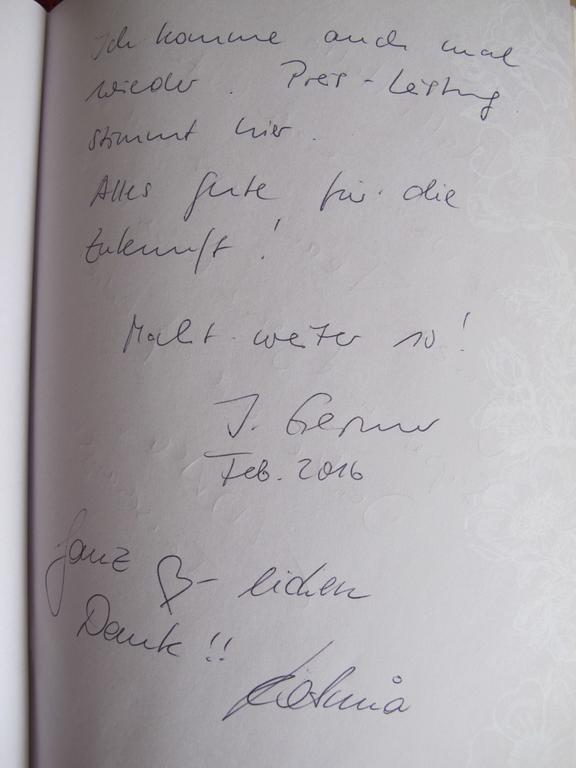 Ich komme auch mal
wieder. Preis-Leistung
stimmt hier.
Alles Gute für die
Zukunft!
Macht weiter so!
J.
Feb. 2016
Ganz ♡-lichen
Dank!!